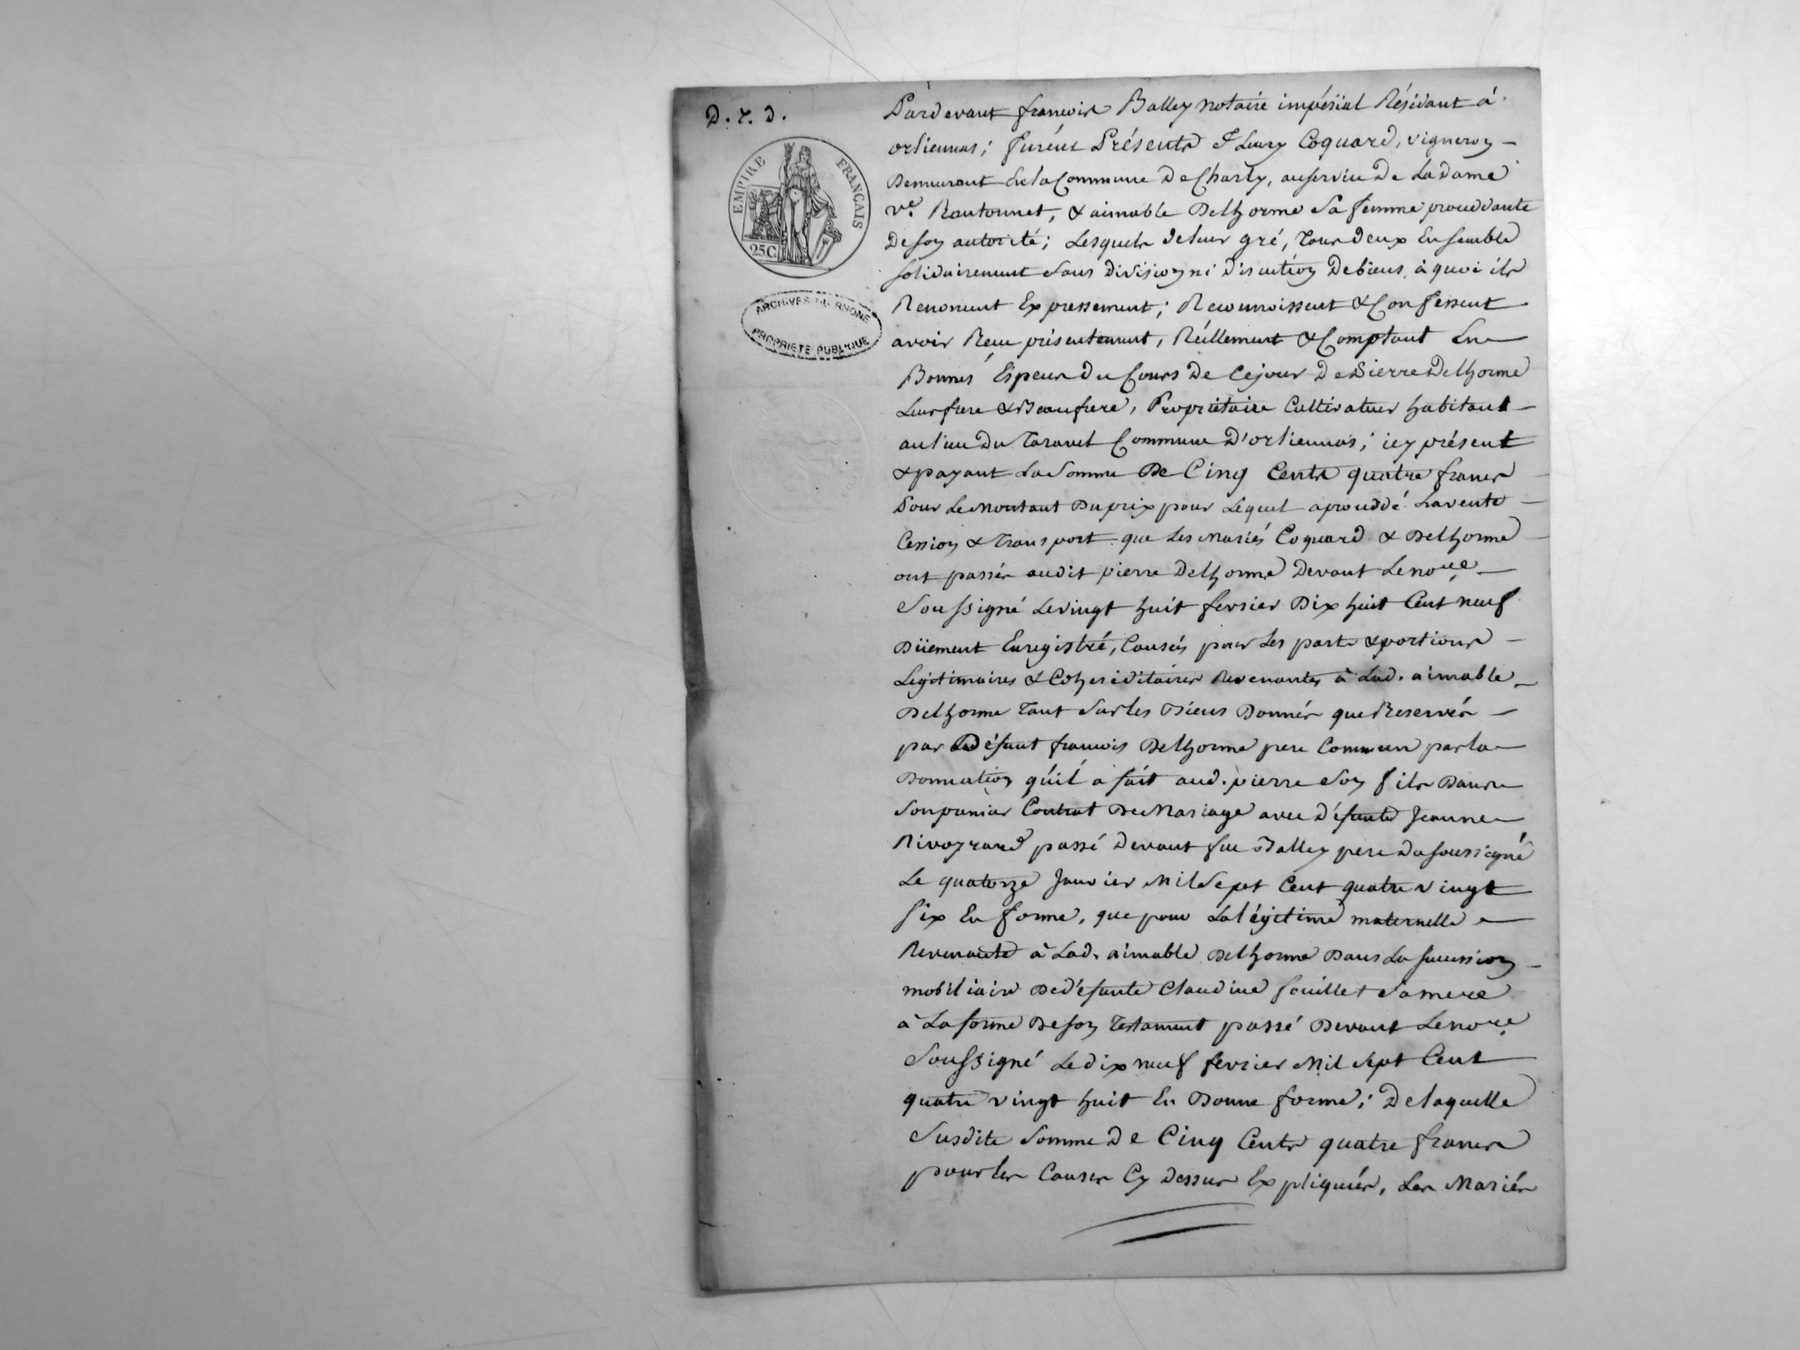 D. r. d.
EMPIRE FRANÇAIS
25C
ARCHIVES DU RHÔNE
PROPRIÉTÉ PUBLIQUE
Pardevant françois Balley notaire impérial Résidant à
orliennas; furent Présents Fleury Coquard, vigneron
Demeurant En la Commune De Charly, au service De La dame
ve. Rautonnet, & aimable Delhorme Sa femme proceddante
De son autorité; Lesquels de leur gré, tous deux Ensemble
solidairement sans division ni discution De biens à quoi ils
Renoncent Expressement; Reconnoissent & Confessent
avoir Recu présentement, Réellement & Comptant En
Bonnes Especes du Cours de Cejour De Pierre Delhorme
Leur frere & Beaufrere, Propriétaire Cultivateur habitant
au lieu Du Taravel Commune D'orliennas; icy présent
& payant La Somme De Cinq Cents quatre francs
Pour Le Montant Du prix pour Lequel a proceddé La vente
Cession & Transport que Les Mariés Coquard & Delhorme
ont passés audit pierre Delhorme Devant Le nore.
Soussigné Le vingt huit fevrier Dix huit Cent neuf
Düement Enregistré, Causés pour Les parts & portions
Legitimaires & Cohereditaires Revenantes à Lad. aimable
Delhorme Tant Sur les Biens Donnés que Reservés
par Le Défunt françois Delhorme pere Commun par la
Donnation qu'il a fait aud. pierre Son fils Dans
Son premier Contrat De Mariage avec défunte Jeanne
Rivoyrard passé Devant feu Balley pere Du soussigné
Le quatorze Janvier Mil Sept Cent quatre vingt
six En forme, que pour La légitime maternelle
Revenante à Lad. aimable Delhorme Dans La succession
mobiliaire De défunte Claudine fouillet Sa mere
à La forme De son Testament passé Devant Le nore.
Soussigné Le dix neuf fevrier Mil Sept Cent
quatre vingt huit En Bonne forme; De laquelle
Susdite Somme De Cinq Cents quatre francs
pour les Causes Cy Dessus Expliquées, Les Mariés